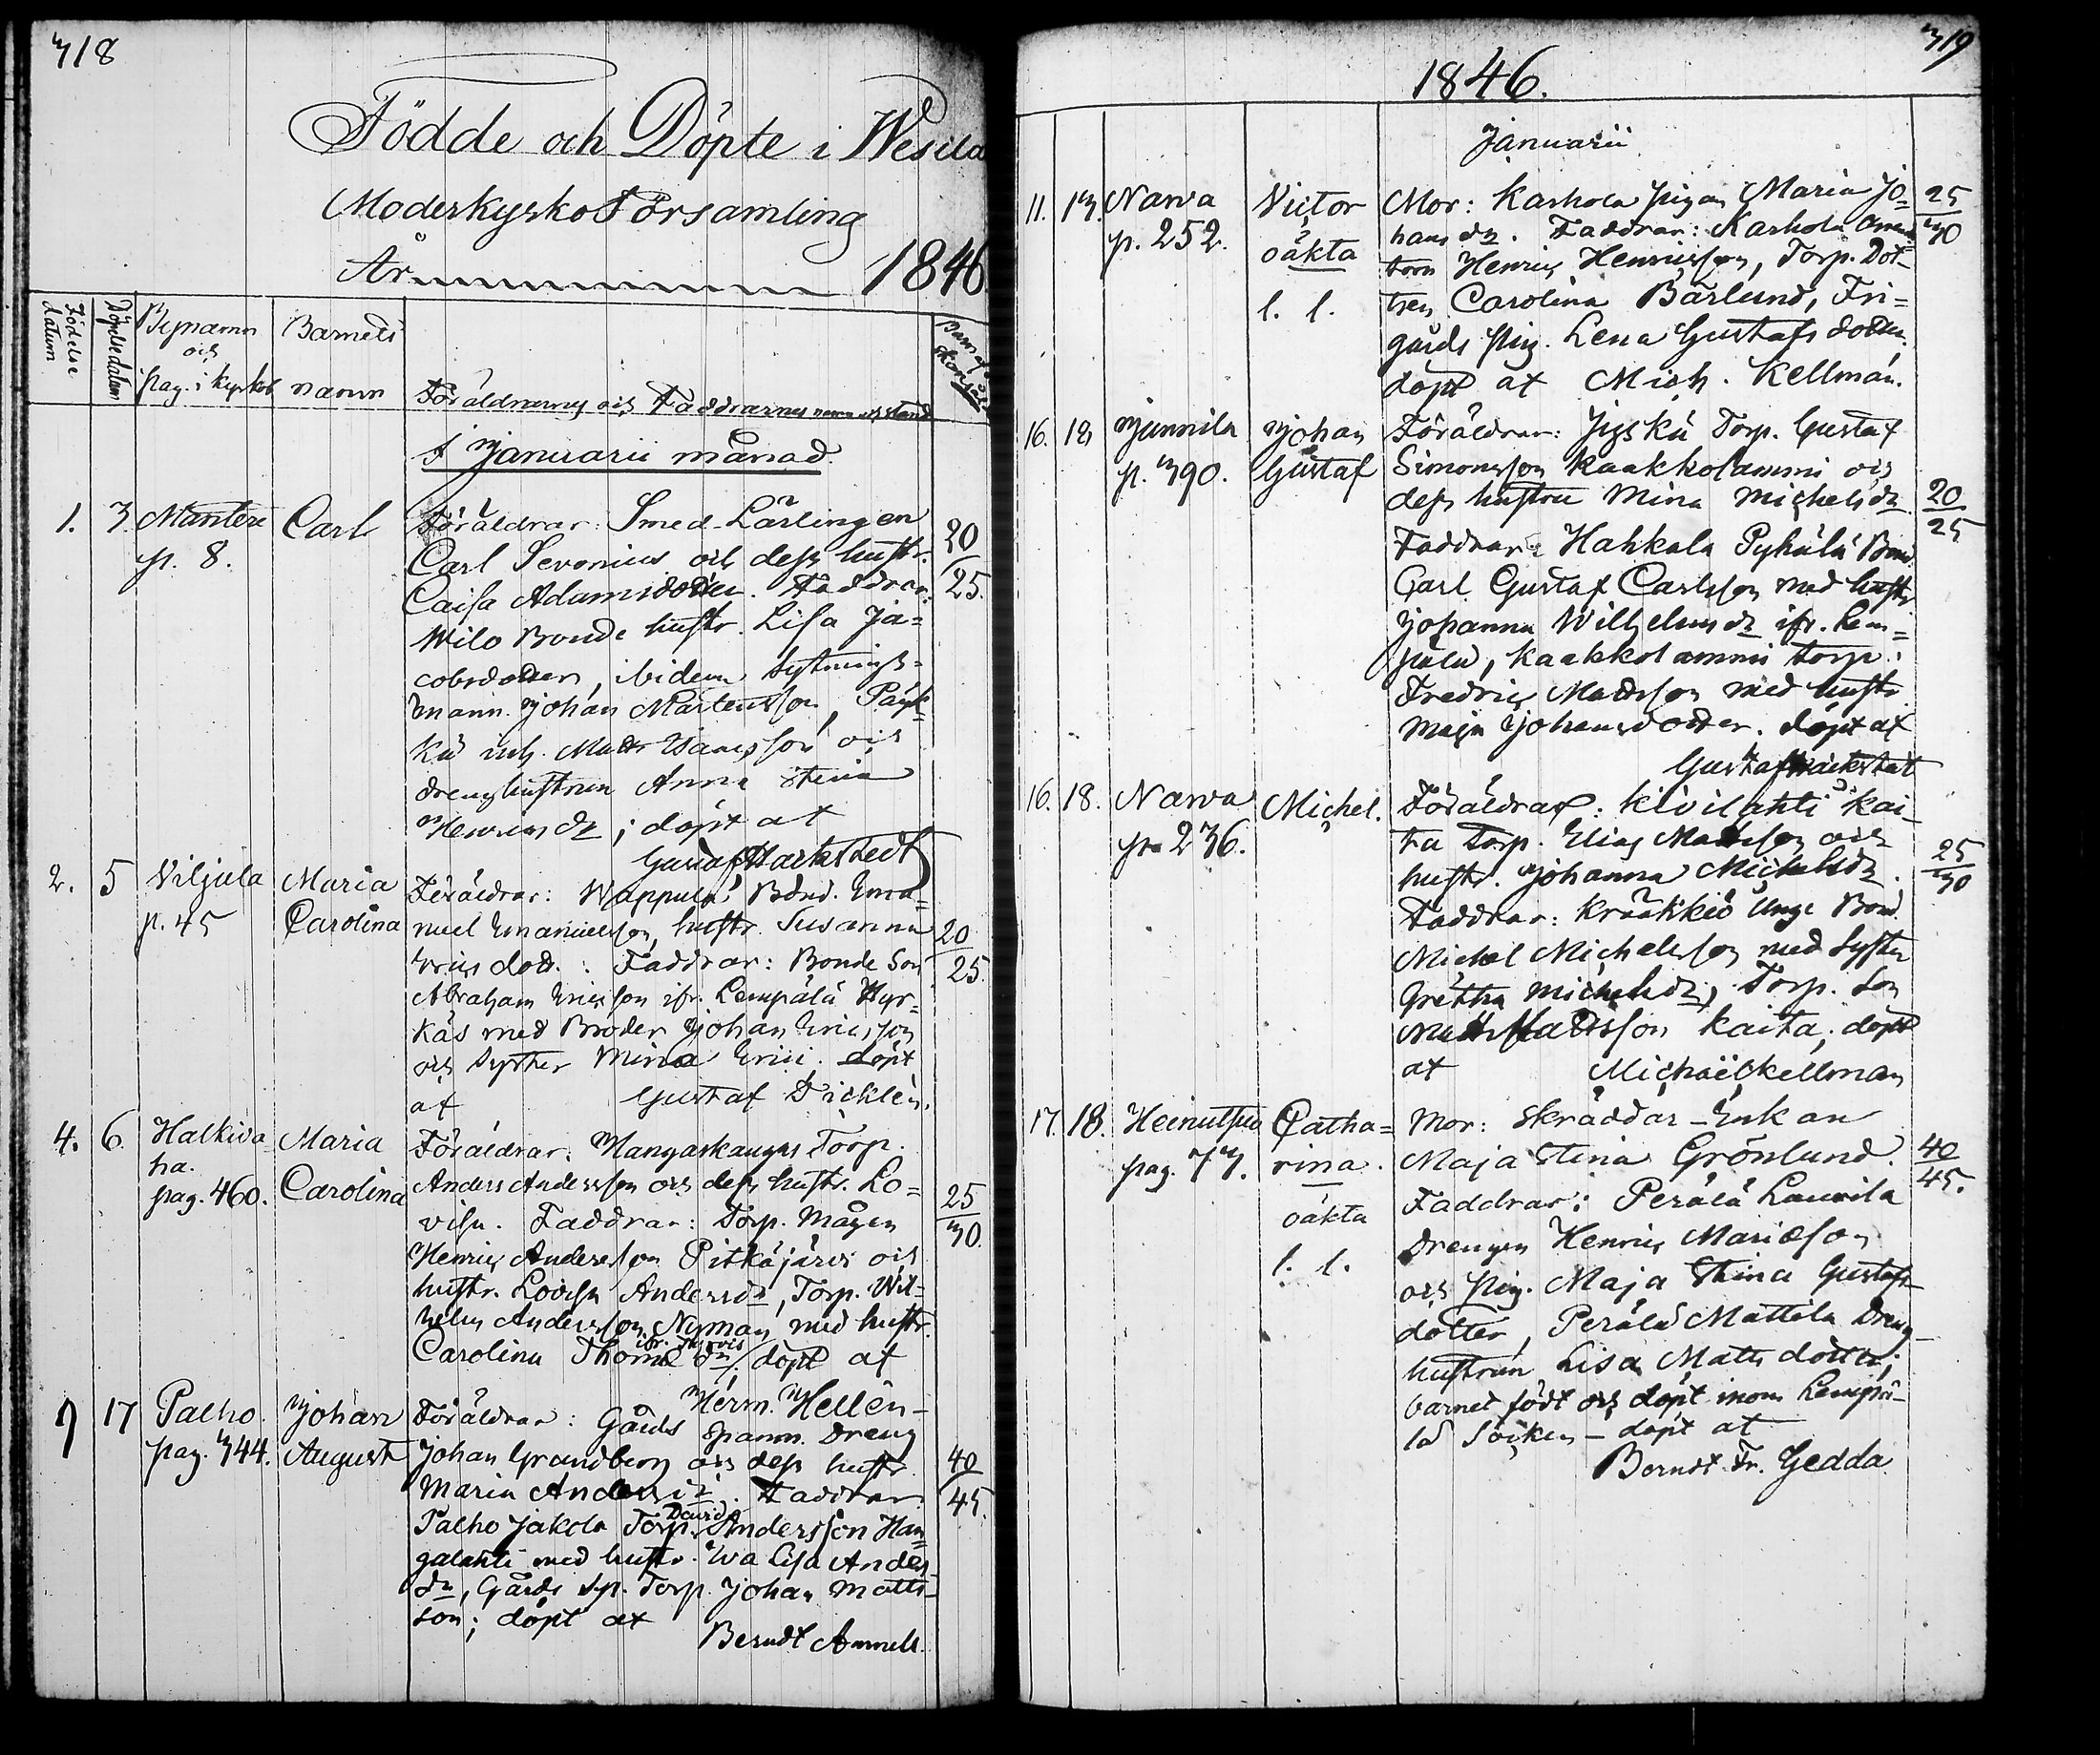 318
Födde och Döpte i Wesila
Moderkyrko Församling
År 1846.
Födelse datum
Döpelsedatum
Bynamn och pag. i kyrkob
Barnets namn
Föräldrarnes och Faddrarnes namn och stånd
I Januarii månad.
1. 3. Mantere p. 8. Carl
Föräldrar: Smed-Lärlingen
Carl Sevonius och dess hustr.
Caisa Adamsdotter. Faddrar:
Wilo Bonde hustr. Lisa Ja=
cobsdotter, ibidem Sytnings=
mann Johan Mårtensson,
inh. Matts och
drenghustrun Anna Stina
Henricsdr; döpt af
Gustaf Hackstedt
20/25.
2. 5 Viljula p. 45 Maria Carolina
Föräldrar: Wappula Bond. Ema=
nuel Emanuelsson, hustr. Susanna
Ericsdott. : Faddrar: Bonde Son
Abraham Ericsson ifr. Lempälä Hyr=
käs med Broder Johan Ericsson
och Syster Mina Erici. döpt
af Gustaf Dicklén.
20/25.
4. 6. Halkiva=
ha.
pag. 460. Maria Carolina
Föräldrar. Hangaskangas Torp.
Anders Andersson och dess hustr. Lo=
visa. Faddrar: Torp. Mågen
Henric Andersson Pitkäjärvi och
hustr. Lovisa Andersdr, Torp. Wil=
helm Andersson Nyman med hustr.
Carolina Thomædr, döpt af
Herm. Hellén-
25/30.
7 17 Palho. pag. 344. Johan August
Föräldrar: Gårds Spanm. Dreng
Johan Grandberg och dess hustr
Maria Andersdr. Faddrar
Palho Jakola Torp. David Andersson Han=
galahti med hustr. Eva Lisa Anders
dr, Gårds Sp. Torp. Johan Matts=
son; döpt af
Berndt Amnell.
40/45.
319
1846.
Januarii
11. 13. Narva p. 252. Victor oäkta l. l.
Mor: Karhola pigan Maria Jo=
hansdr. Faddrar: Karhola
torn Henric Henricsson, Torp. Dot=
tren Carolina Bärlund, Fri=
gårds pig. Lena Gustafs dotter.
döpt af Mich. Kellman.
25/30
16. 18 Junnila p. 390. Johan Gustaf
Föräldrar: Torp. Gustaf
Simonsson Kaakkolammi och
dess hustru Mina Michelsdr
Faddrar: Hahkala Pyhälä Bond
Carl Gustaf Carlsson med hustr
Johanna Wilhelmsdr ifr. Lem=
pälä, Kaakkolammi torp.
Fredric Mattsson med hustr
Maja Johansdotter. döpt af
Gustaf Hackstedt
20/25
16. 18. Narva p. 236. Michel.
Föräldrar: Kivilahti Kai=
ta Torp. Elias Mattsson och
hustr. Johanna Michelsdr.
Faddrar: Krääkkiö Unge Bond.
Michel Michelsson med Syster
Gretha Michelsdr, Torp. Son
Matts Mattsson Kaita, döpt
af Michaël Kellman
25/30
17. 18. pag. 77. Catha=
rina.
oäkta
l. l.
Mor: Skräddar-Enkan
Maja Stina Grönlund.
Faddrar: Perälä Laurila
Drengen Henric Mariæson
och pig. Maja Stina Gustafs
dotter, Perälä Mattila Dreng
hustrun Lisa Matts dotter,
barnet födt och döpt inom Lempä=
lä Socken - döpt af
Berndt Fr. Gedda.
40/45.